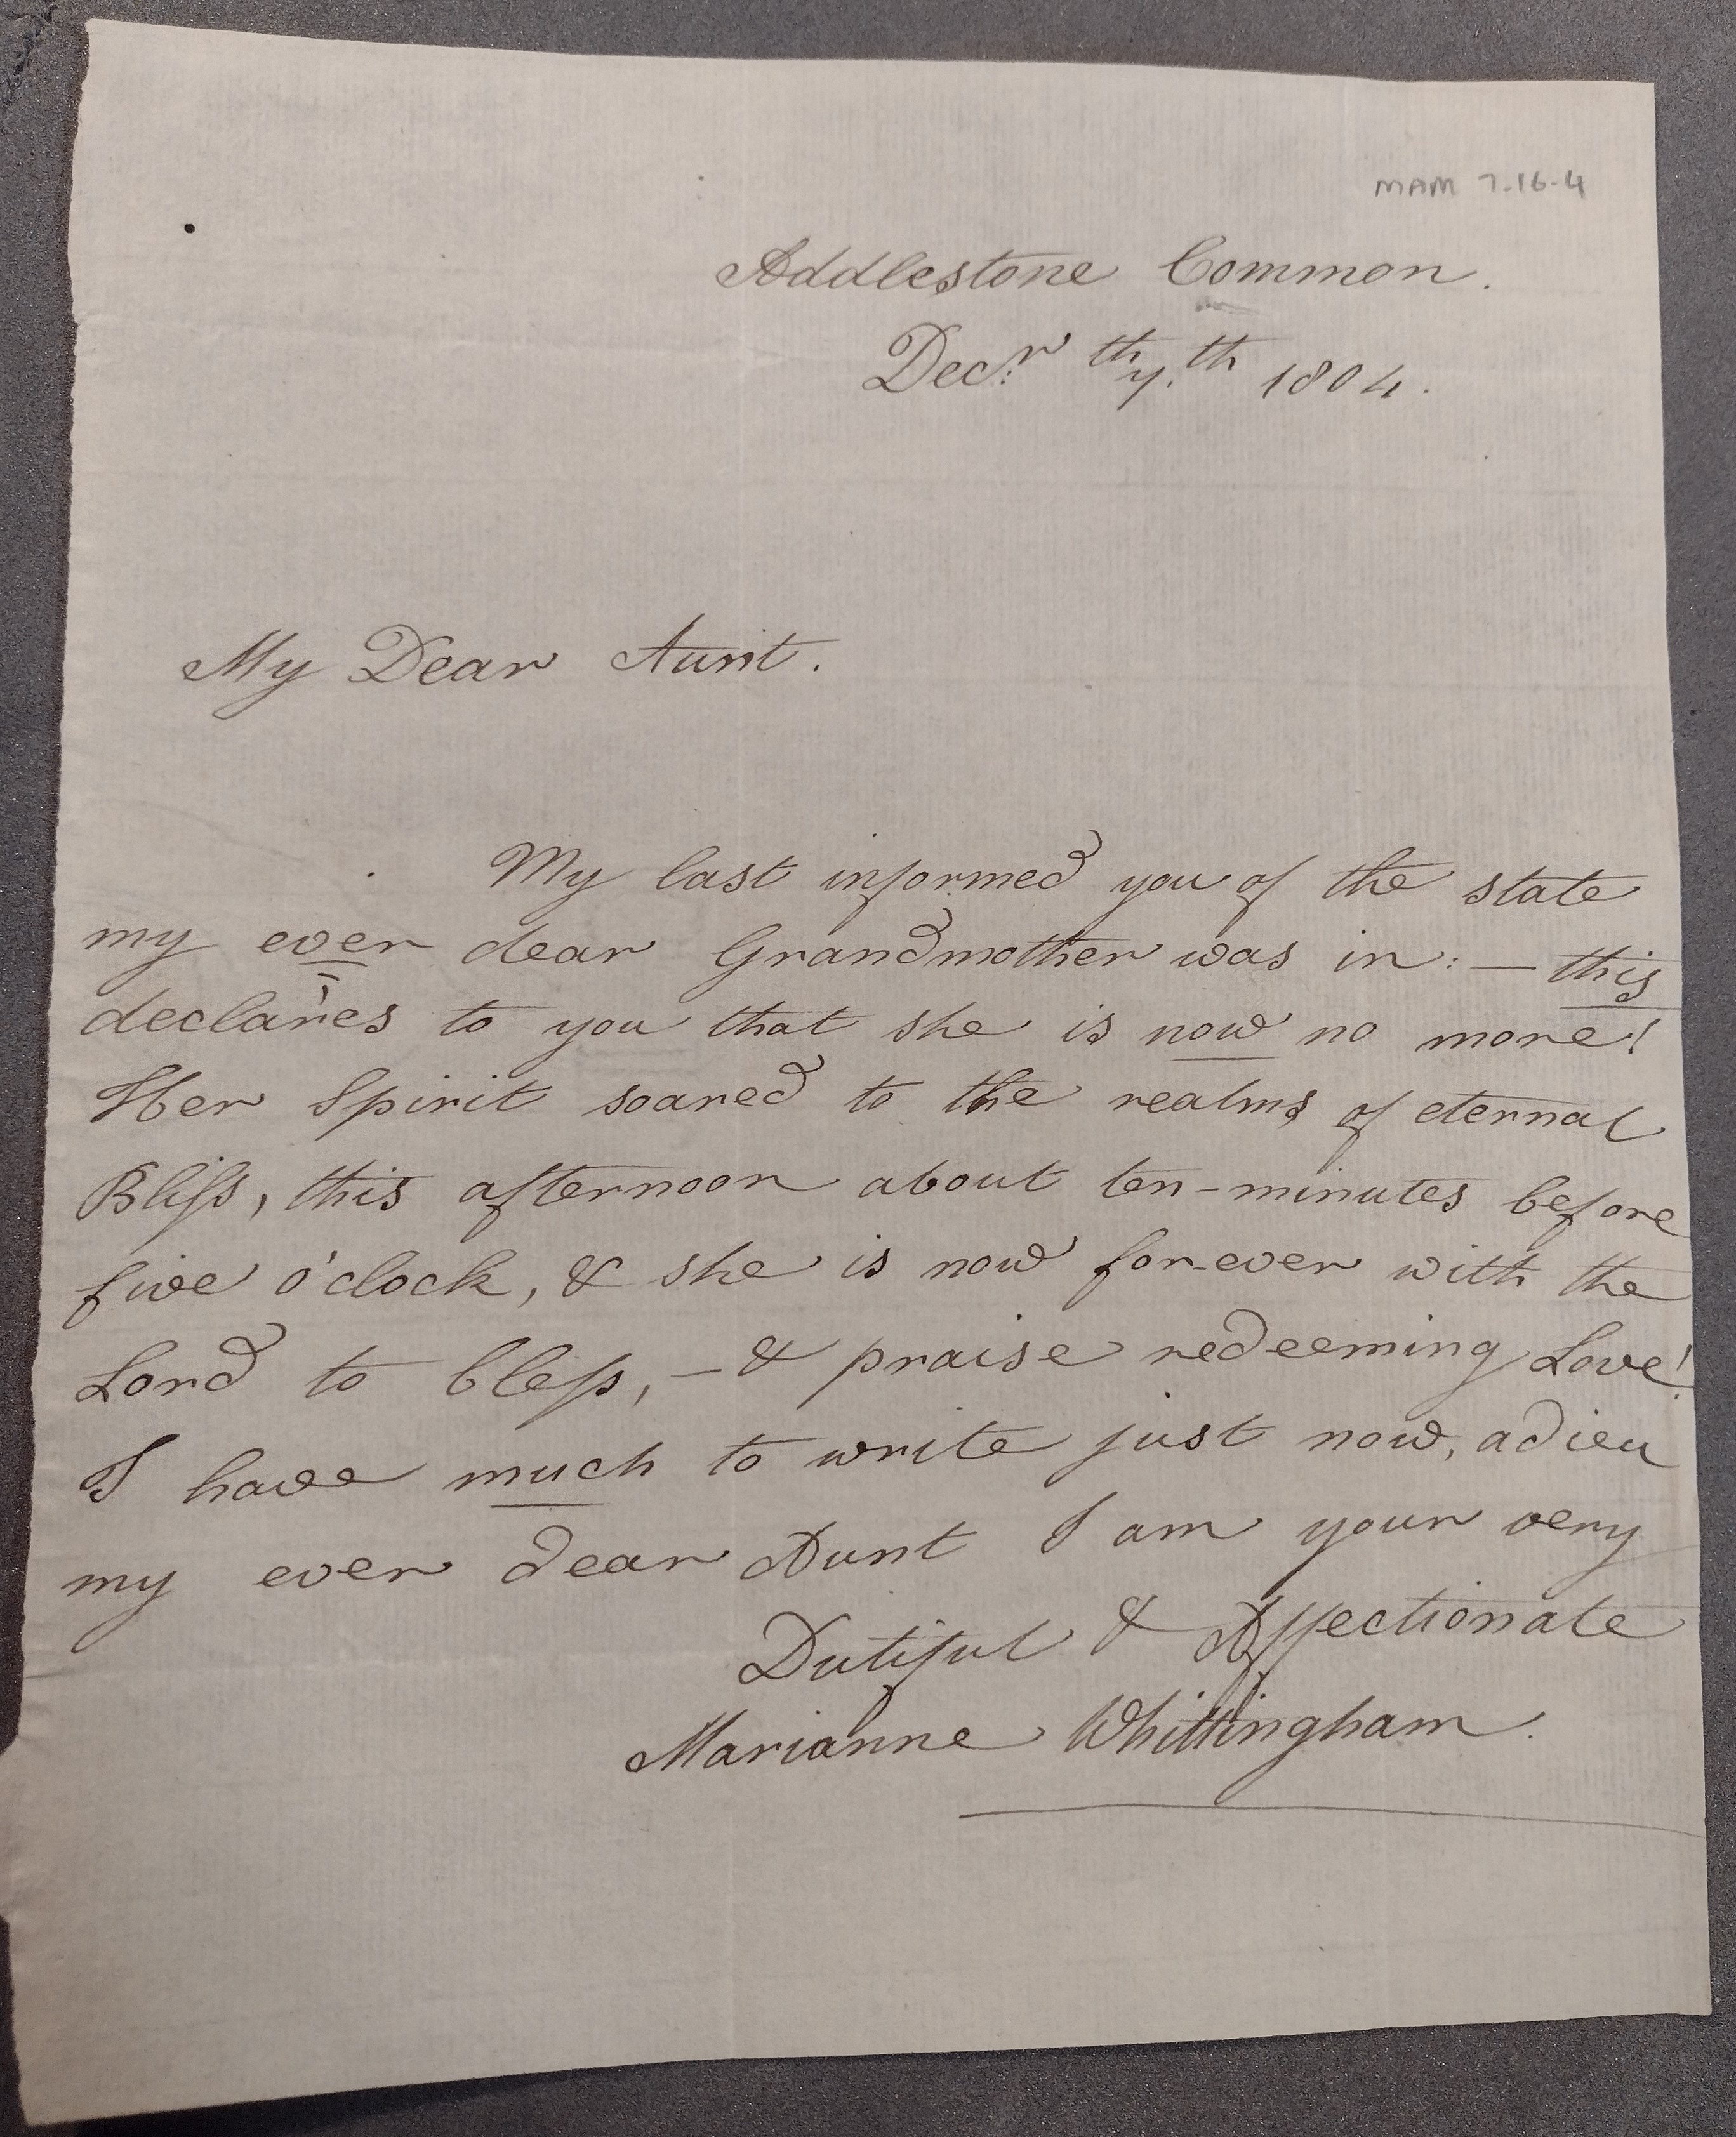 MAM 7.16-4
Addlestone Common.
Decr. th 7.th 1804.
My Dear Aunt.
My last informed you of the state
my ever dear Grandmother was in: — this
declares to you that she is now no more!
Her Spirit soared to the realms of eternal
Bliſs, this afternoon about ten-minutes before
five o'clock, & she is now for-ever with the
Lord to bleſs, — & praise redeeming Love!
I have much to write just now, adieu
my ever dear Aunt I am your very
Dutiful & Affectionate
Marianne Whittingham.